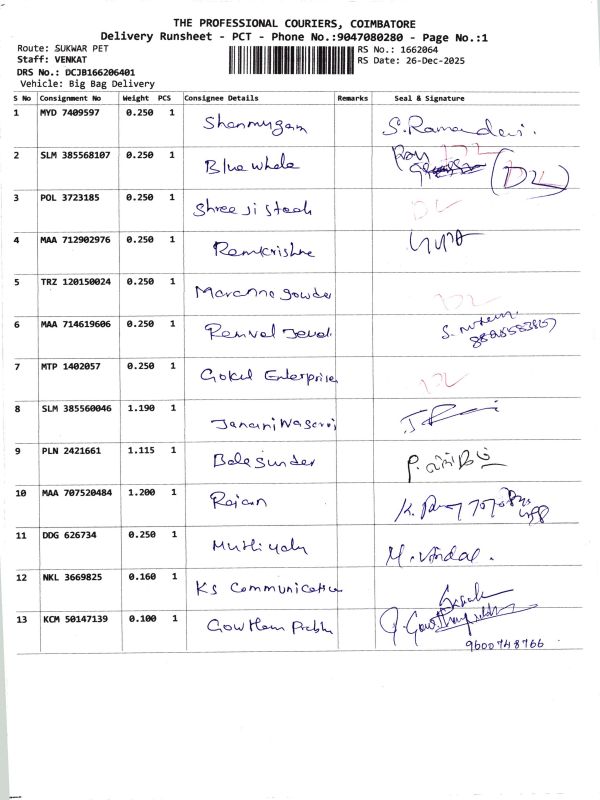 THE PROFESSIONAL COURIERS, COIMBATORE
Delivery Runsheet - PCT - Phone No.:9047080280 - Page No.:1
Route: SUKWAR PET
Staff: VENKAT
DRS No.: DCJB166206401
Vehicle: Big Bag Delivery
RS No.: 1662064
RS Date: 26-Dec-2025
S No Consignment No Weight PCS Consignee Details Remarks Seal & Signature
1 MYD 7409597 0.250 1 Shanmugam S. Ramadevi.
2 SLM 385568107 0.250 1 Blue whale DL
3 POL 3723185 0.250 1 Shree ji steel DL
4 MAA 712902976 0.250 1 Ramkrishna
5 TRZ 120150024 0.250 1 Maranna gowder DL
6 MAA 714619606 0.250 1 S.
7 MTP 1402057 0.250 1 Gokul Enterprise DL
8 SLM 385560046 1.190 1
9 PLN 2421661 1.115 1 Balasunder
10 MAA 707520484 1.200 1 Rajan K.
11 DDG 626734 0.250 1 M.
12 NKL 3669825 0.160 1 Ks Communication
13 KCM 50147139 0.100 1 Gowtham Prabhu
9600748766